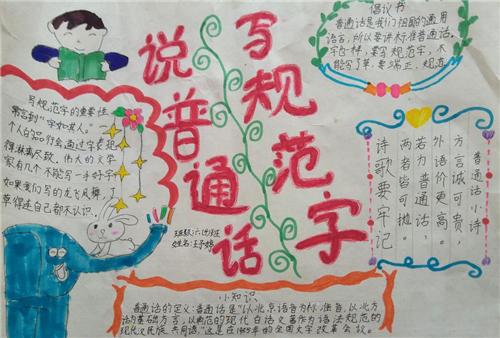 说普通话
写规范字
倡议书
普通话是我们祖国的通用
语言,所以要讲标准普通话。
字也一样,要写规范字,不
能写了草,要端正、规范
写规范字的重要性
常言到"字如其人"。
个人的品行会通过字表现
得淋漓尽致,伟大的文学
家有几个不能写一手好字
如果我们写的龙飞凤舞,了
草得连自己都不认识。
班级:六
姓名:王
普通话小诗
方言诚可贵,
外语价更高。
若为普通话,
两者皆可抛。
诗歌要牢记
小知识
普通话的定义:普通话是"以北京语音为标准音,以北方
话为基础方言,以典范的现代白话文著作为语法规范的
现代汉民族共同语",这是在1955年的全国文字改革会议。